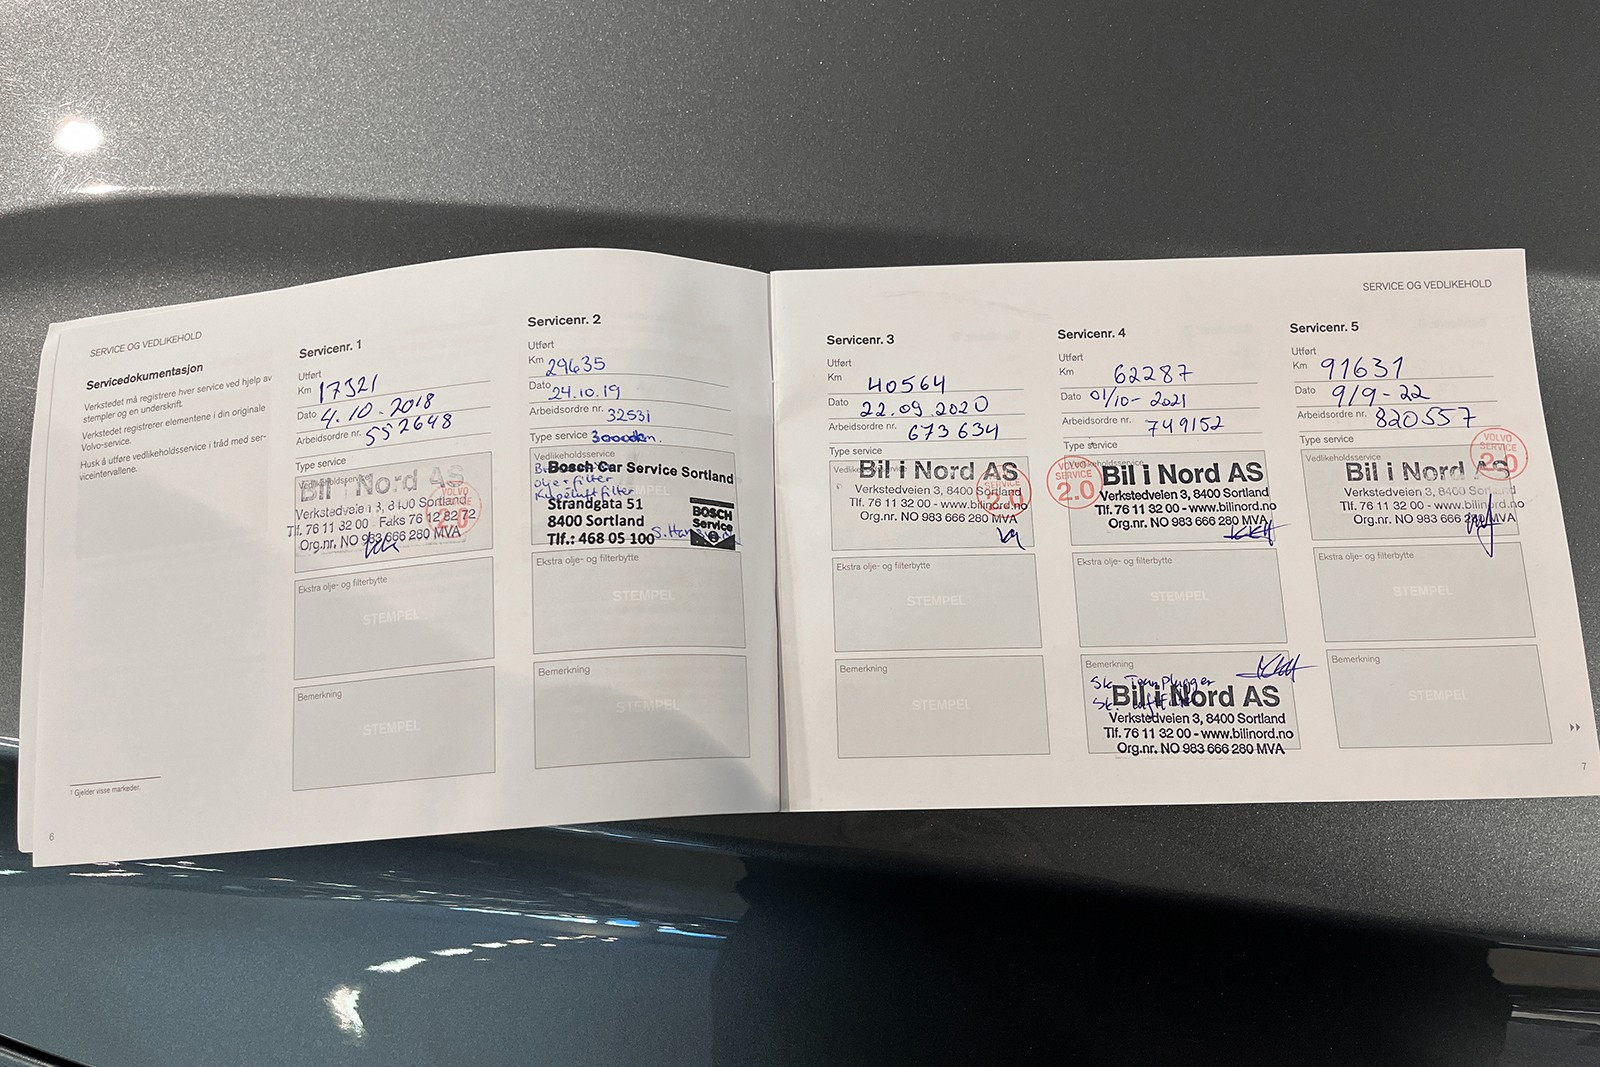 SERVICE OG VEDLIKEHOLD
Servicedokumentasjon
Verkstedet må registrere hver service ved hjelp av
stempler og en underskrift.
Verkstedet registrerer elementene i din originale
Volvo-service.
Husk å utføre vedlikeholdsservice i tråd med ser-
viceintervallene.
1 Gjelder visse markeder.
6
Servicenr. 1
Utført
Km 17321
Dato 4.10.2018
Arbeidsordre nr. 552648
Type service
Vedlikeholdsservice
Bil i Nord AS
Verkstedveien 3, 8400 Sortland
Tlf. 76 11 32 00 - Faks 76 12 82 72
Org.nr. NO 983 666 280 MVA
VOLVO
2.0
Ekstra olje- og filterbytte
STEMPEL
Bemerkning
STEMPEL
Servicenr. 2
Utført
Km 29635
Dato 24.10.19
Arbeidsordre nr. 32531
Type service 30000km.
Vedlikeholdsservice
Bosch Car Service Sortland
olje+filter
Kupeluftfilter
Strandgata 51
8400 Sortland
Tlf.: 468 05 100
BOSCH
Service
Ekstra olje- og filterbytte
STEMPEL
Bemerkning
STEMPEL
SERVICE OG VEDLIKEHOLD
Servicenr. 3
Utført
Km 40564
Dato 22.09.2020
Arbeidsordre nr. 673634
Type service
Vedlikeholdsservice
Bil i Nord AS
Verkstedveien 3, 8400 Sortland
Tlf. 76 11 32 00 - www.bilinord.no
Org.nr. NO 983 666 280 MVA
SERVICE
2.0
Ekstra olje- og filterbytte
STEMPEL
Bemerkning
STEMPEL
Servicenr. 4
Utført
Km 62287
Dato 01/10-2021
Arbeidsordre nr. 749152
Type service
Vedlikeholdsservice
VOLVO
SERVICE
2.0
Bil i Nord AS
Verkstedveien 3, 8400 Sortland
Tlf. 76 11 32 00 - www.bilinord.no
Org.nr. NO 983 666 280 MVA
Ekstra olje- og filterbytte
STEMPEL
Bemerkning
Sk. Tennplugger
Sk. luftfilter
Bil i Nord AS
Verkstedveien 3, 8400 Sortland
Tlf. 76 11 32 00 - www.bilinord.no
Org.nr. NO 983 666 280 MVA
Servicenr. 5
Utført
Km 91631
Dato 9/9-22
Arbeidsordre nr. 820557
Type service
Vedlikeholdsservice
VOLVO
SERVICE
2.0
Bil i Nord AS
Verkstedveien 3, 8400 Sortland
Tlf. 76 11 32 00 - www.bilinord.no
Org.nr. NO 983 666 280 MVA
Ekstra olje- og filterbytte
STEMPEL
Bemerkning
STEMPEL
7